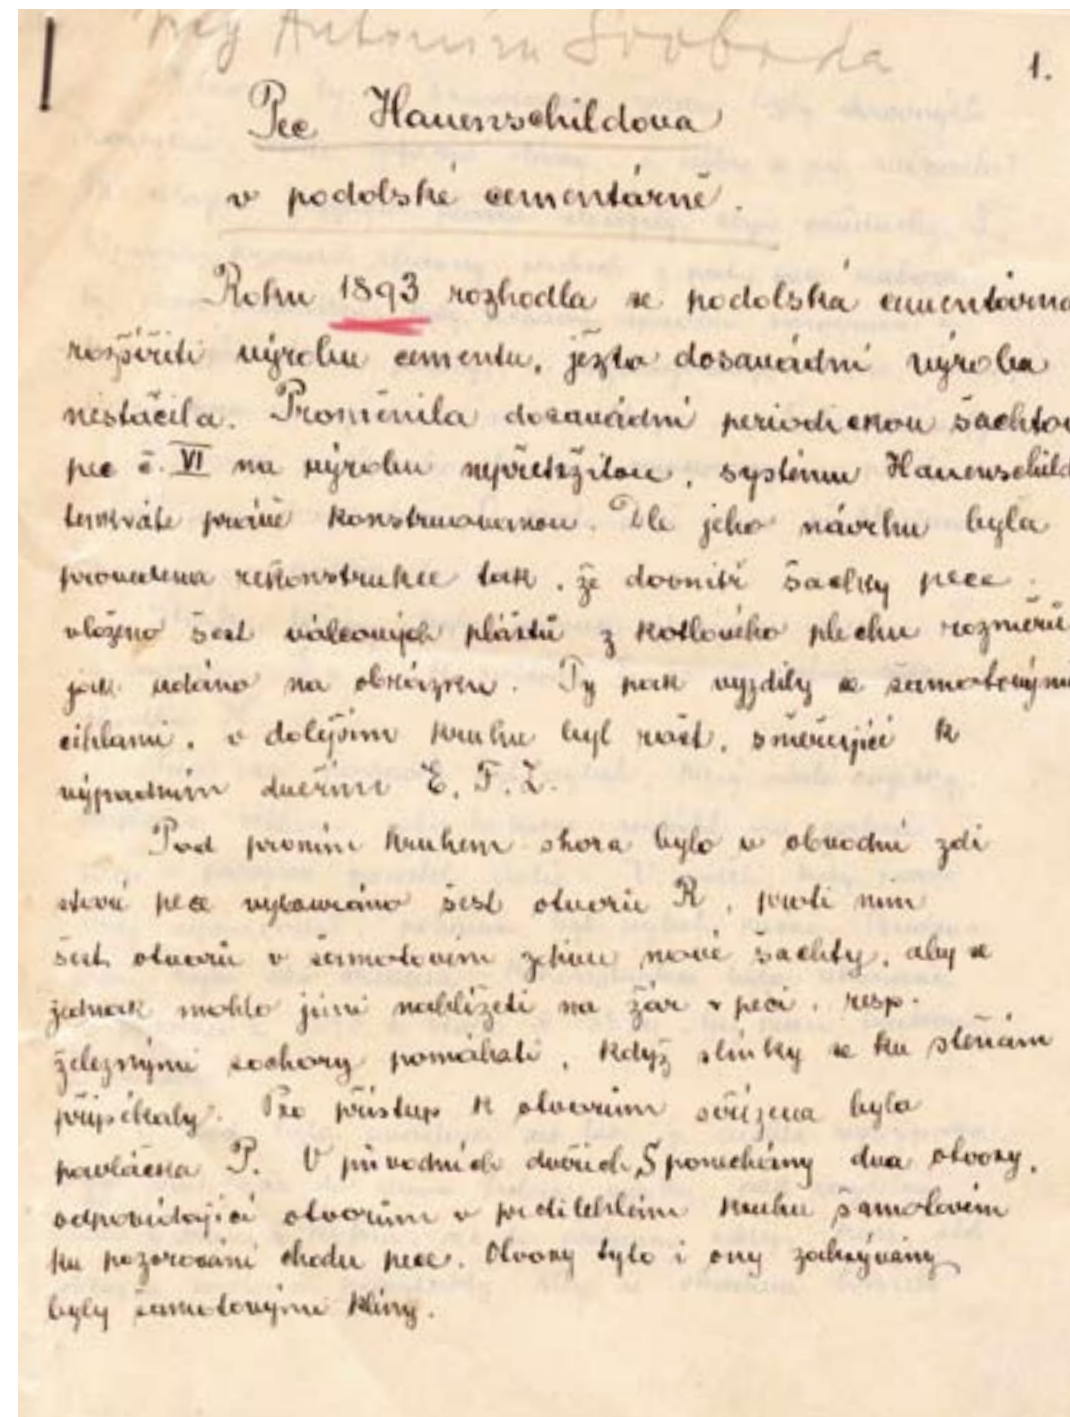 Ing Antonín Svoboda
1.
Pec Hauenschildova
v podolské cementárně.
Roku 1893 rozhodla se podolská cementárna
rozšířiti výrobu cementu, ježto dosavádní výroba
nestačila. Proměnila dosavádní periodickou šachtov
pec č. VI na výrobu nepřetržitou, systému Hauenschild
tenkráte právě konstruovanou. Dle jeho návrhu byla
provedena rekonstrukce tak, že dovnitř šachty pece
vloženo šest válcových plášťů z kotlového plechu rozměrů
jak udáno na obrázku. Ty pak vyzdily se šamotovými
cihlami, v dolejším kruhu byl rošt, směřující k
výpadním dveřím E, F, Ž.
Pod prvním kruhem shora bylo v obvodní zdi
staré pece vybouráno šest otvorů R, proti nim
šest otvorů v šamotovém zdivu nové šachty, aby se
jednak mohlo jimi nahlížeti na žár v peci, resp.
železnými sochory pomáhati, když slínky se ku stěnám
připékaly. Pro přístup k otvorům zřízena byla
pavláčka P. V původních dveřích S ponechány dva otvory,
odpovídající otvorům v protilehlém kruhu šamotovém
ku pozorování chodu pece. Otvory tyto i ony zakrývány
byly šamotovými klíny.